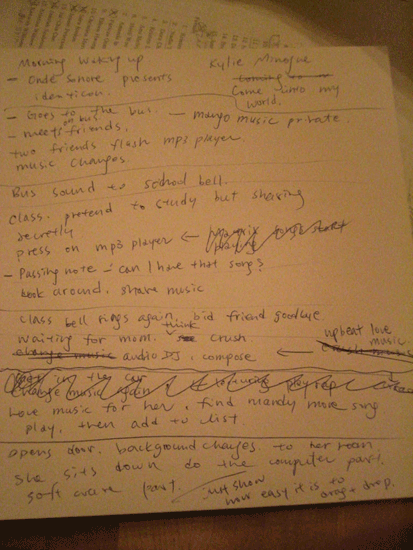 Morning waking up.
Kylie Minogue
- Onde Sonore presents
identicon.
Coming to
Come into my
world.
- Goes to the bus.
on bus
- meets friends.
- mango music private.
two friends flash mp3 player.
music changes.
Bus sound to school bell.
class. pretend to study but sharing
secretly
press on mp3 player ←
- Passing note - can I have that song?
book around. share music
class bell rings again, bid friend goodbye
think
waiting for mom. crush
change music audio DJ, compose ←
upbeat love
music.
crush music
in the car
change music again
Love music for her, find mandy more song
play, then add to list
opens door. background changes. to her room
She sits down do the computer part.
software part.
just show
how easy it is to
drag & drop.